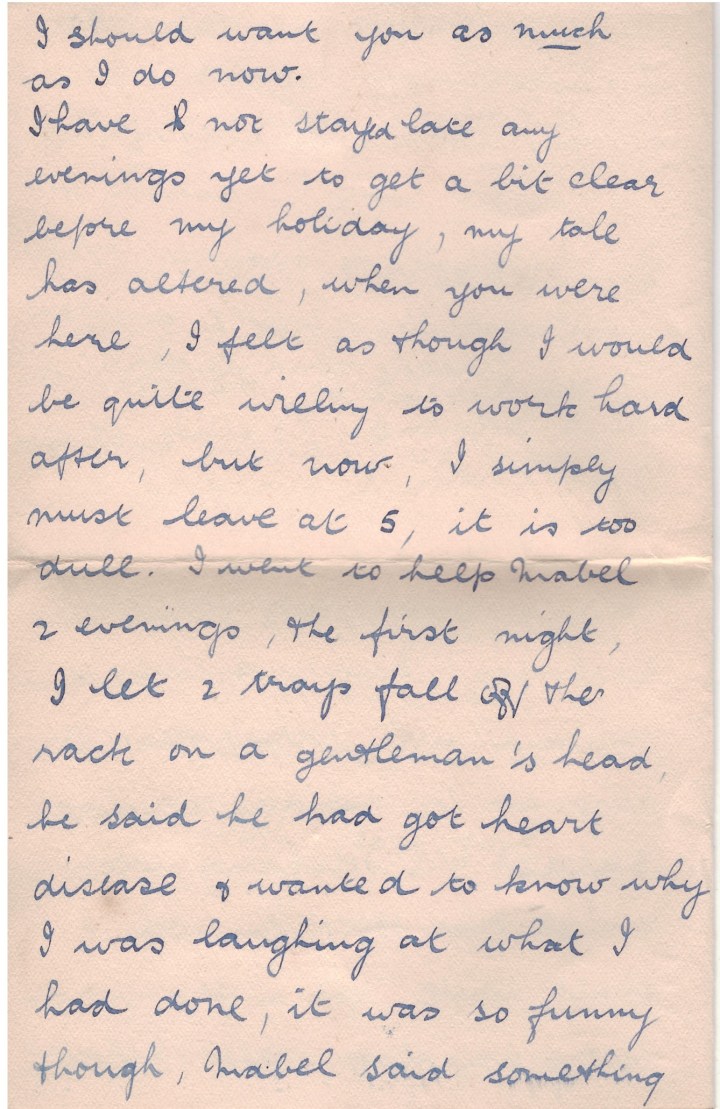 I should want you as much
as I do now.
I have not stayed late any
evenings yet to get a bit clear
before my holiday, my tale
has altered, when you were
here, I felt as though I would
be quite willing to work hard
after, but now, I simply
must leave at 5, it is too
dull. I went to help Mabel
2 evenings, the first night,
I let 2 trays fall off the
rack on a gentleman's head,
he said he had got heart
disease & wanted to know why
I was laughing at what I
had done, it was so funny
though, Mabel said something